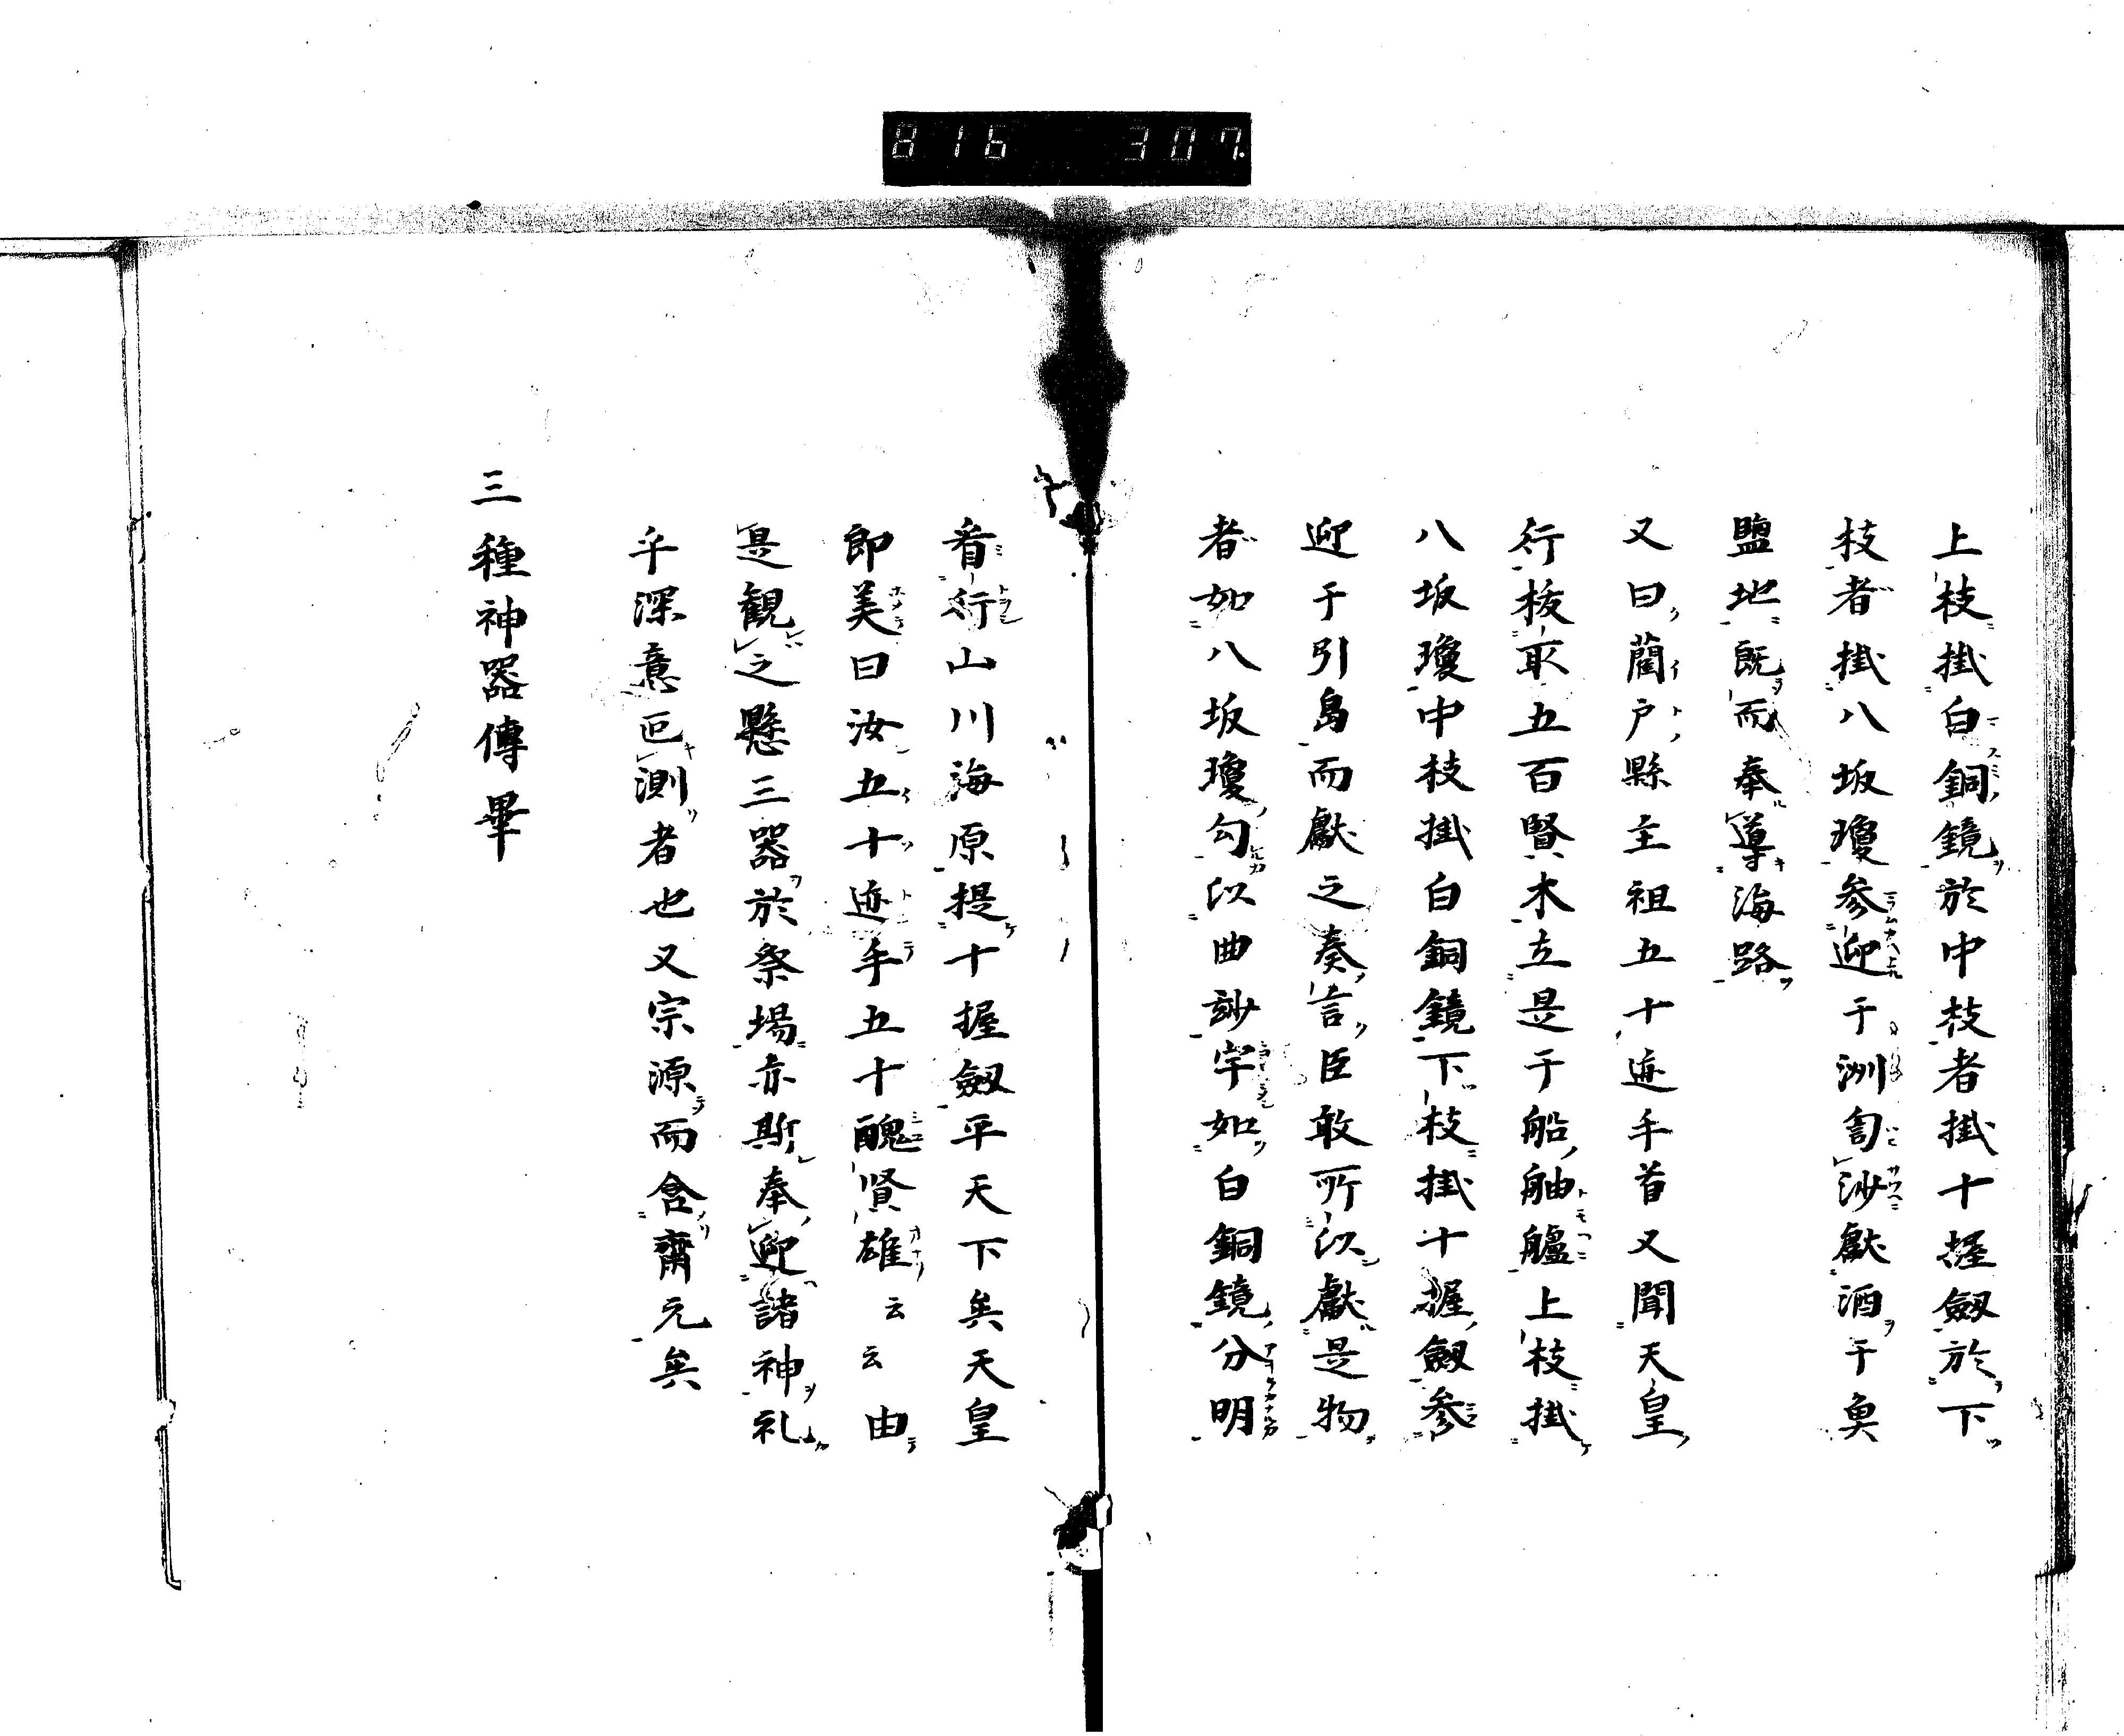 816 307
上枝掛白銅鏡於中枝者掛十握劔於下
枝者掛八坂瓊参迎于洲匐沙獻酒于魚
盬地既而奉導海路
又曰藺戸縣主祖五十迹手首又聞天皇
行抜取五百賢木立是于船舳艫上枝掛
八坂瓊中枝掛白銅鏡下枝掛十握劔参
迎于引島而獻之奏言臣敢所以獻是物
者如八坂瓊勾以曲訬宇如白銅鏡分明
看行山川海原提十握劔平天下矣天皇
即美曰汝五十迹手五十醜賢雄云云由
是観之懸三器於祭場亦斯奉迎諸神礼
乎深意叵測者也又宗源而含齋元矣
三種神器傳畢